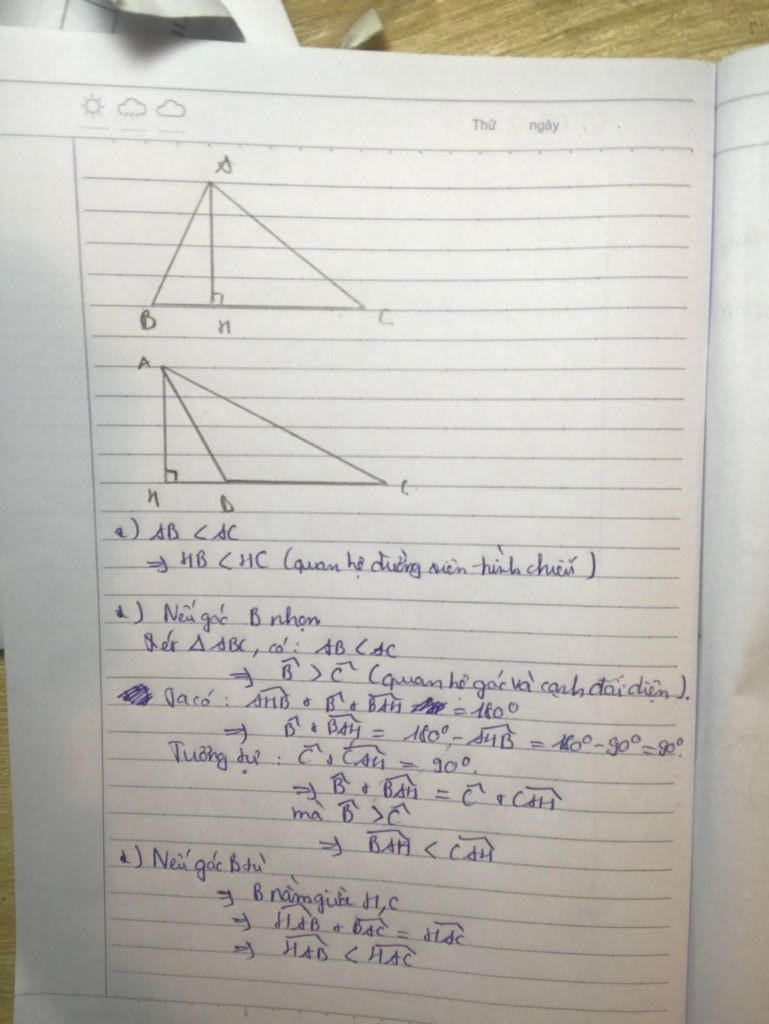 Thứ ngày
A
B
H
C
A
H
B
C
a) AB < AC
⇒ HB < HC (quan hệ đường xiên - hình chiếu)
b) Nếu góc B nhọn
Xét Δ ABC, có: AB < AC
⇒ B̂ > Ĉ (quan hệ góc và cạnh đối diện).
Ta có: \widehat{AHB} + B̂ + \widehat{BAH} = 180°
⇒ B̂ + \widehat{BAH} = 180° - \widehat{AHB} = 180° - 90° = 90°.
Tương tự: Ĉ + \widehat{CAH} = 90°.
⇒ B̂ + \widehat{BAH} = Ĉ + \widehat{CAH}
mà B̂ > Ĉ
⇒ \widehat{BAH} < \widehat{CAH}
) Nếu góc B tù
⇒ B nằm giữa H, C
⇒ \widehat{HAB} + \widehat{BAC} = \widehat{HAC}
⇒ \widehat{HAB} < \widehat{HAC}